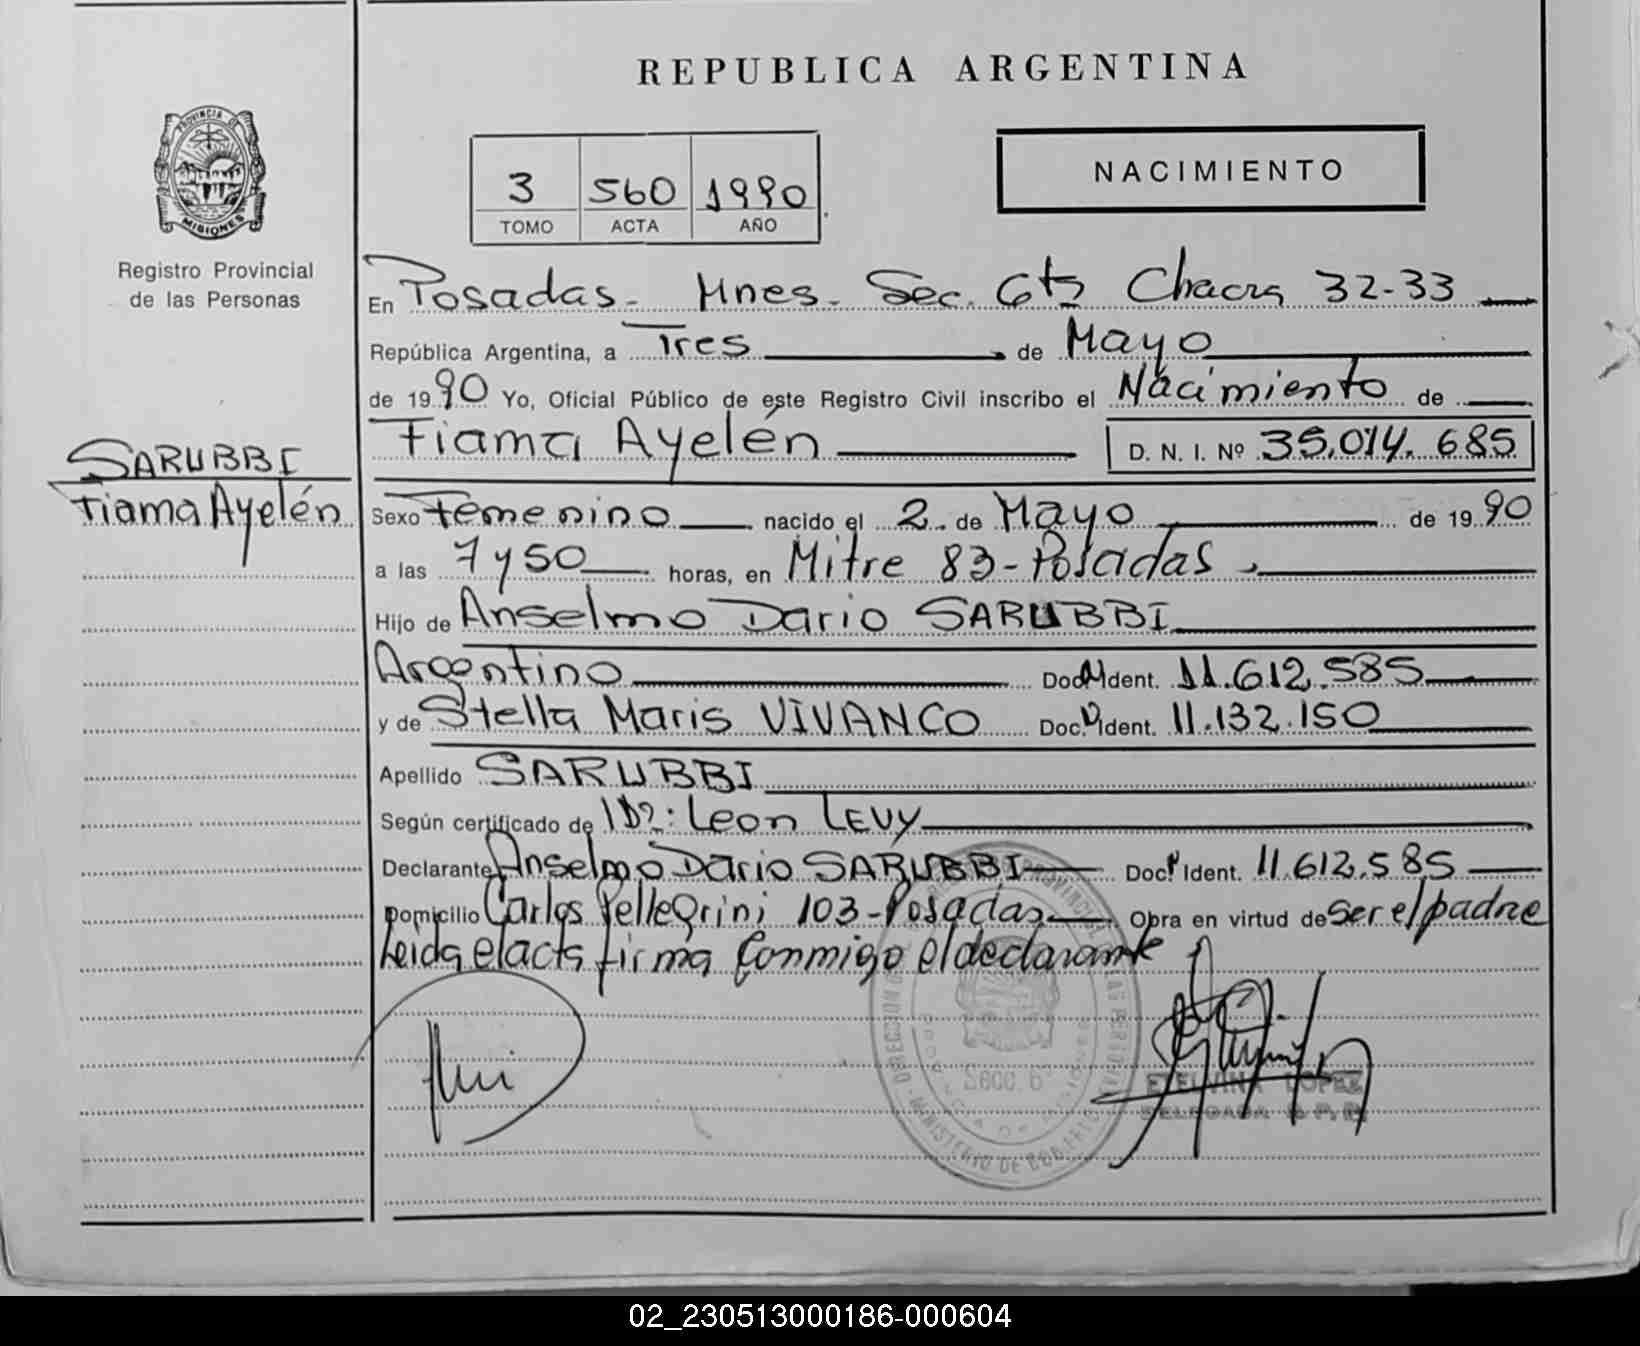 REPUBLICA ARGENTINA
PROVINCIA D
MISIONES
Registro Provincial
de las Personas
3 560 1990
TOMO ACTA AÑO
NACIMIENTO
En Posadas - Mnes. Sec. 6ta Chacra 32-33
República Argentina, a Tres de Mayo
de 1990 Yo, Oficial Público de este Registro Civil inscribo el Nacimiento de
Fiama Ayelén D. N. I. Nº 35.014.685
SARUBBI
Fiama Ayelén
Sexo Femenino nacido el 2 de Mayo de 1990
a las 7 y 50 horas, en Mitre 83 - Posadas
Hijo de Anselmo Dario SARUBBI
Argentino Doc. Ident. 11.612.585
y de Stella Maris VIVANCO Doc. Ident. 11.132.150
Apellido SARUBBI
Según certificado de Leon LEVY
Declarante Anselmo Dario SARUBBI Doc. Ident. 11.612.585
Domicilio Carlos Pellegrini 103 - Posadas Obra en virtud de ser el padre
Leida el acta firma conmigo el declarante
ETELVINA LOPEZ
DELEGADA R.P.P.
02_230513000186-000604